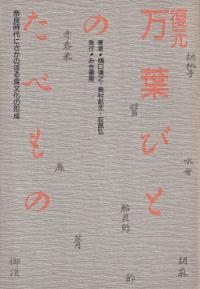 復元
万葉びと
の
たべもの
奈良時代にさかのぼる食文化の形成
著者・樋口清之・奥村彪生・荻昌弘
発行・みき書房
胡桃子
赤呑米
醤
水母
鹿
鮐貝鮓
胡麻
菁
酢
御准